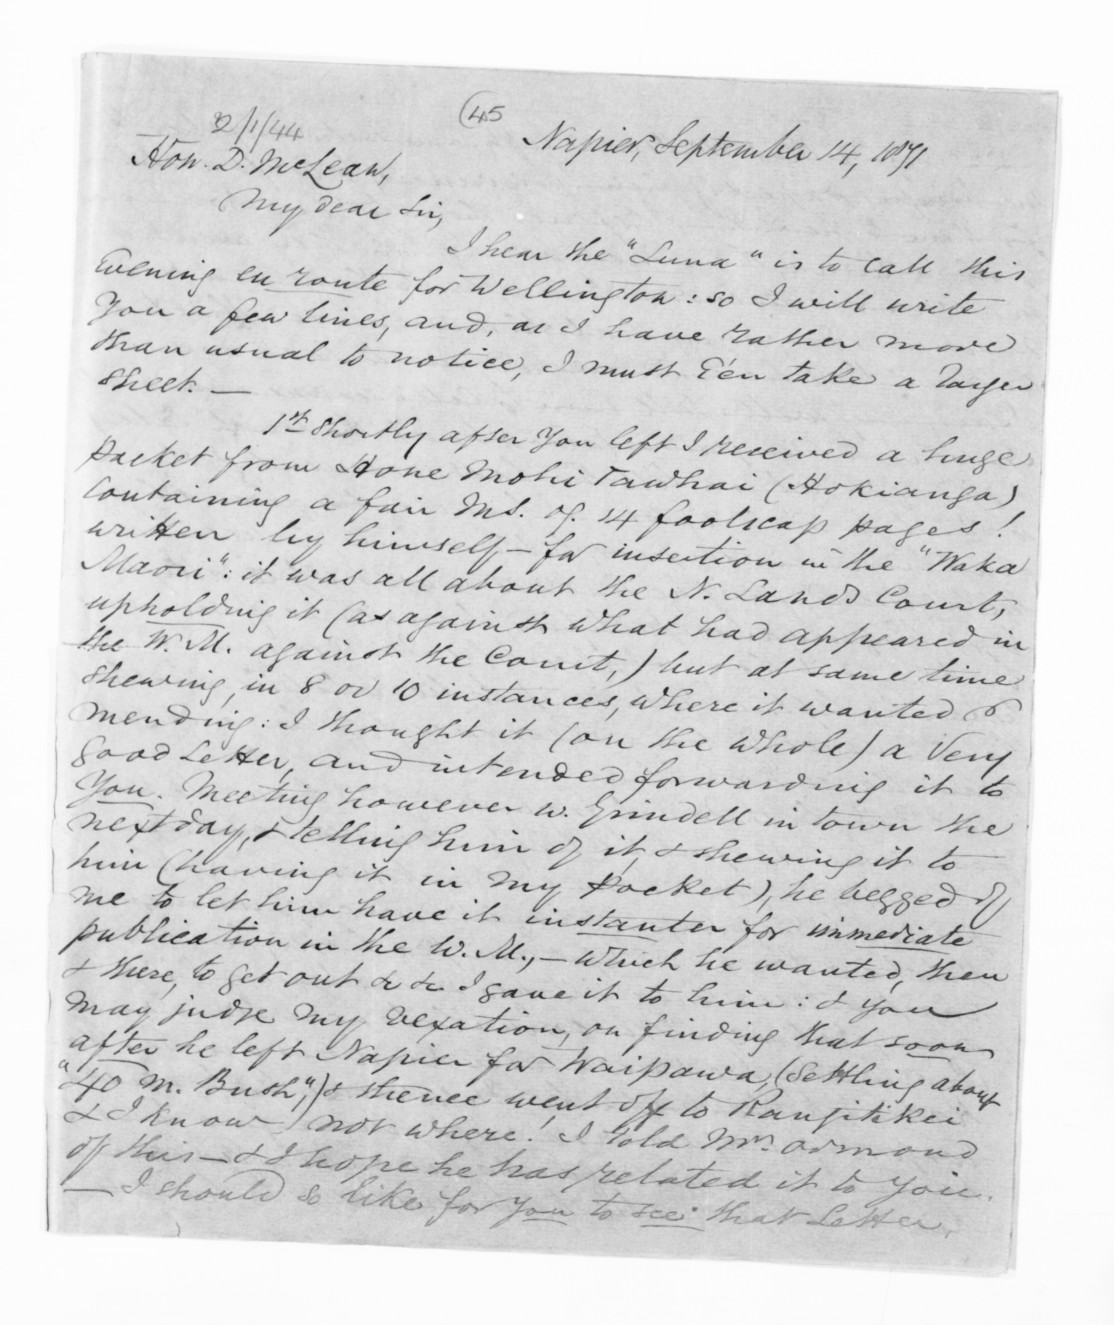 45
2/1/44
Napier, September 14, 1871
Hon. D. McLean,
My dear Sir,
I hear the "Luna" is to call this
Evening en route for Wellington: so I will write
You a few lines, and, as I have rather more
than usual to notice, I must E'en take a larger
sheet. —
1st. Shortly after You left I received a huge
packet from Hone Mohi Tawhai (Hokianga)
containing a fair MS. of 14 foolscap pages!
written by himself – for insertion in the "Waka
Maori": it was all about the N. Lands Court,
upholding it (as against what had appeared in
the W. M. against the Court,) but at same time
shewing, in 8 or 10 instances, where it wanted
mending: I thought it (on the whole) a Very
good Letter, and intended forwarding it to
You. Meeting however w. Grindell in town the
next day, & telling him of it, & shewing it to
him (having it in my Pocket), he begged of
me to let him have it instanter for immediate
publication in the W. M., – which he wanted, then
& there, to get out &c &c I gave it to him: & you
may judge my vexation, on finding that soon
after he left Napier for Waipawa, (settling about
"40 m. Bush",) & thence went off to Rangitikei
& I know not where! I told Mr. Ormond
of this – & I hope he has related it to You.
— I should so like for You to see that Letter.